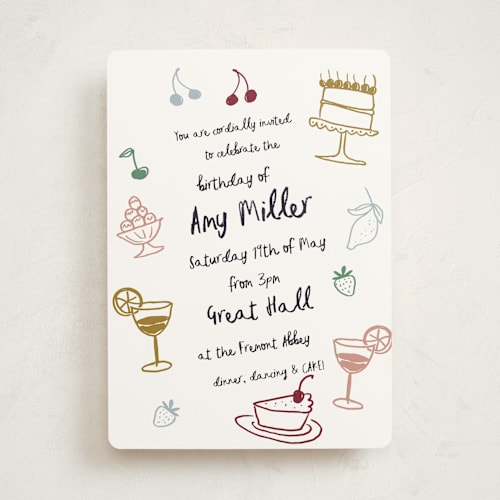 You are cordially invited
to celebrate the
birthday of
Amy Miller
Saturday 19th of May
from 3pm
Great Hall
at the Fremont Abbey
dinner, dancing & CAKE!